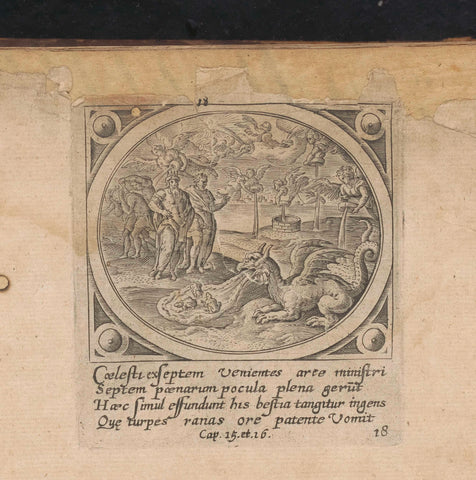 18
Cœlesti exseptem venientes arce ministri
Septem pœnarum pocula plena gerūt
Hæc simul effundunt his bestia tangitur ingens
Quę turpes ranas ore patente Vomit
Cap. 15. et. 16.
18